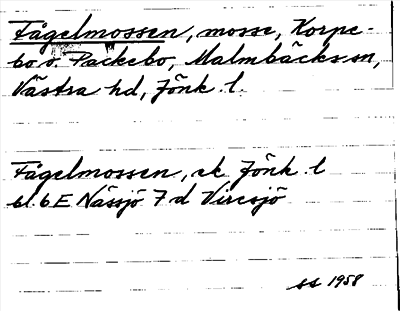 Fågelmossen, mosse, Korpe-
bo o. Packebo, Malmbäcks sn,
Västra hd, Jönk. l.
Fågelmossen, ek Jönk. l
bl. 6E Nässjö 7d Viresjö
SS 1958